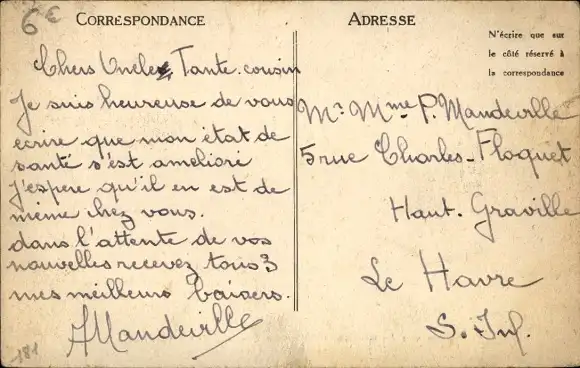 6€
CORRESPONDANCE
Chers Oncle, Tante. cousin
Je suis heureuse de vous
écrire que mon état de
santé s'est amelioré
J'espere qu'il en est de
même chez vous.
dans l'attente de vos
nouvelles recevez tous 3
mes meilleurs baisers.
AMandeville
181
ADRESSE
N'écrire que sur
le côté réservé à
la correspondance
Mr Mme P. Mandeville
5 rue Charles-Floquet
Haut. Graville
Le Havre
S. Inf.